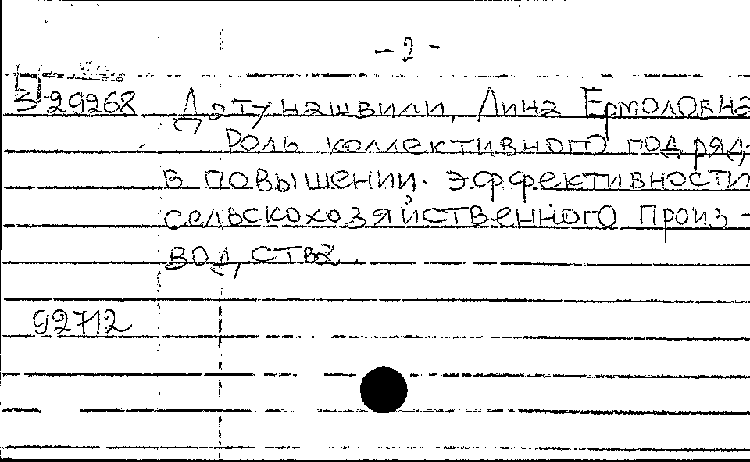 - 2 -
3-29268 Датунашвили, Лина Ермоловна
Роль коллективного подряд-
в повышении эффективности
сельскохозяйственного произ-
водства.
92712